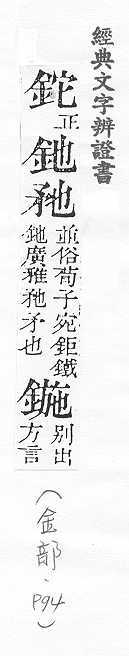 經典文字辨證書
鉈正
鉇㐌並俗荀子宛鉅鐵
鉇廣雅㐌矛也
鍦別出
方言
(金部.P94)